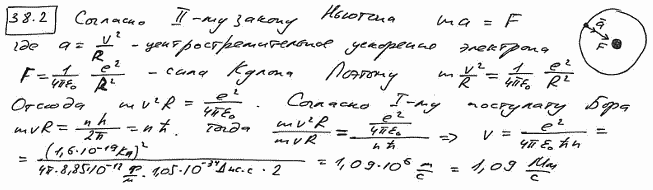 38.2 Согласно II-му закону Ньютона ma = F
где a = v²/R - центростремительное ускорение электрона
a
F
F = 1/4πε₀ e²/R² - сила Кулона Поэтому m v²/R = 1/4πε₀ e²/R²
Отсюда mv²R = e²/4πε₀. Согласно I-му постулату Бора
mvR = nh/2π = nħ. Тогда mv²R/mvR = (e²/4πε₀)/nħ => v = e²/4πε₀ħn =
= (1,6·10⁻¹⁹Кл)²/(4π·8,85·10⁻¹² ф/м·1,05·10⁻³⁴Дж·с·2) = 1,09·10⁶ м/с = 1,09 Мм/с